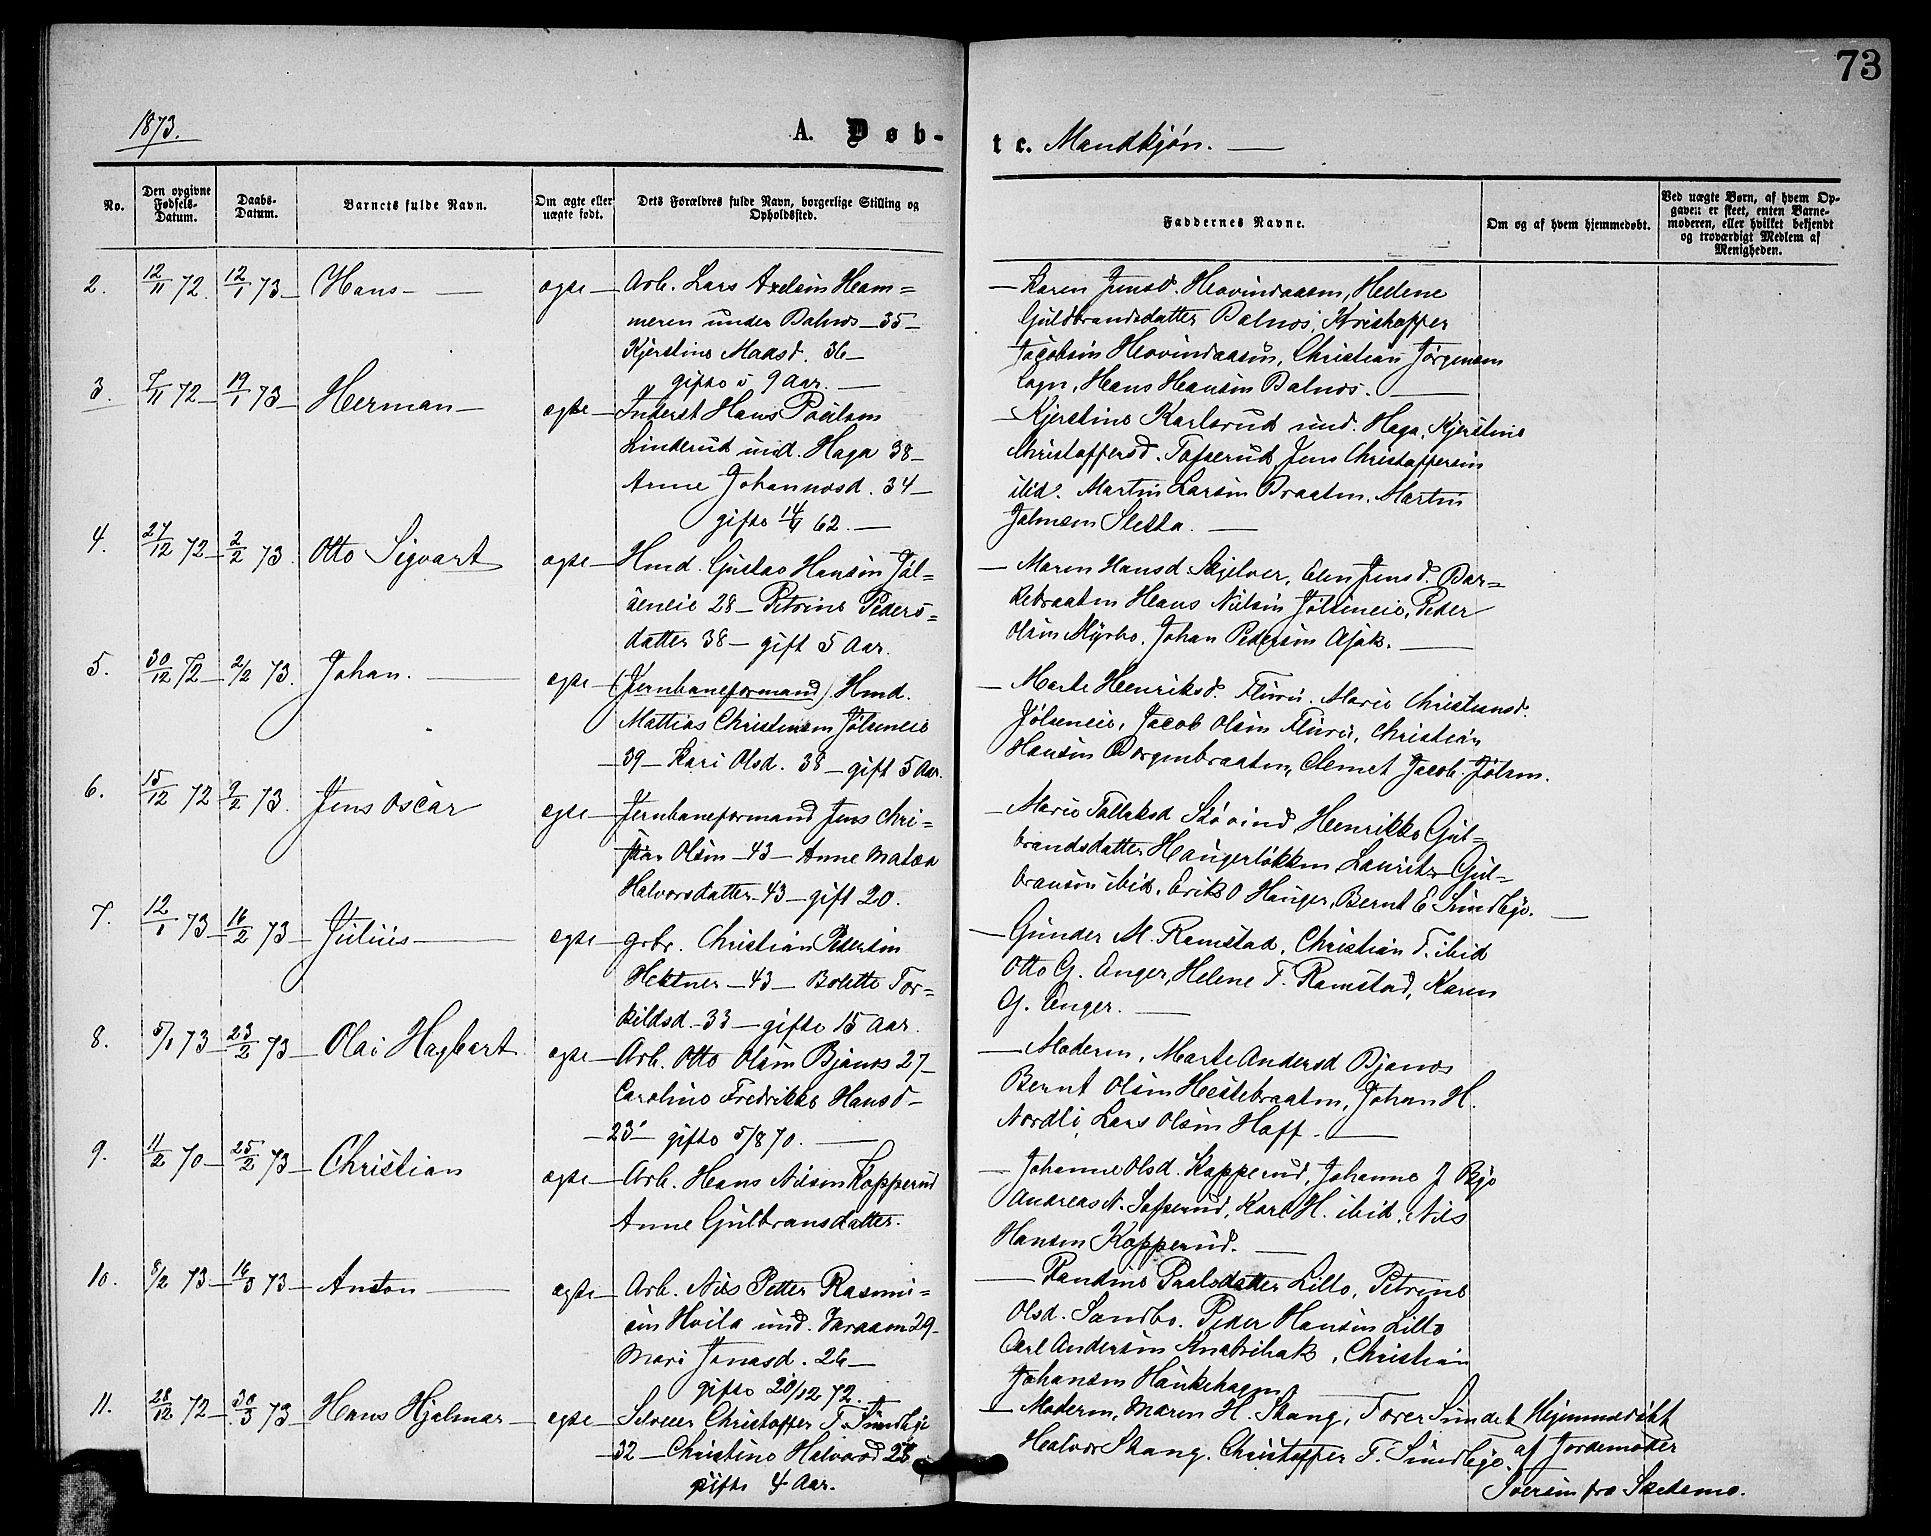 73
1873.
A. Døb-
te. Mandkjøn.
No.
Den opgivne Fødsels-Datum.
Daabs-Datum.
Barnets fulde Navn.
Om ægte eller uægte født.
Dets Forældres fulde Navn, borgerlige Stilling og Opholdssted.
Faddernes Navne.
Om og af hvem hjemmedøbt.
Ved uægte Børn, af hvem Opgaven er skeet, enten Barnemoderen, eller hvilket bekjendt og troværdigt Medlem af Menigheden.
2. 12/11 72. 12/1 73 Hans ægte
Arb. Lars Axelsen Ham=
meren under Balnes 35
Kjerstine Madsd. 36
gifte i 9 Aar.
Karen Jensd. Hovindaasen, Helene
Guldbrandsdatter Balnes, Kristoffer
Jacobsen Hovindaasen, Christian Jørgensen
Hans Hansen Balnes.
3. 7/11 72 19/1 73 Herman ægte
Inderst Hans Paulsen
Linderud und. Haga 38
Anne Johannesd. 34
gifte 62.
Kjerstine Karlsrud und. Haga, Kjerstine
Christoffersd. Tofserud, Jens Christoffersen
ibid. Martin Larsen Braaten, Martin
Johnsen Sletta.
4. 27/12 72 2/2 73. Otto Sigvart ægte
Hmd. Gustav Hansen Jøl=
seneie 28 Petrine Peders=
datter 38 gift 5 Aar.
Maren Hansd. Skjelver, Elen Jensd. Bar=
kebraaten Hans Nielsen Jølseneie, Peder
Olsen Myrbo, Johan Pedersen
5. 30/12 72 2/2 73. Johan. ægte
(Jernbaneformand) Hmd.
Mattias Christensen Jølseneie
39 Kari Olsd. 38 gift 5 Aar.
Marte Henriksd. Fluru, Marie Christiansd.
Jølseneie, Jacob Olsen Fluru, Christian
Hansen Borgenbraaten, Clemet Jacob. Jølsen.
6. 15/12 72 9/2 73. Jens Oscar ægte
Jernbaneformand Jens Chri=
stian Olsen 43 Anne Matea
Halvorsdatter 43 gift 20.
Marie Tallaksd Støvind Henrikke Gul=
brandsdatter Haugerløkken Lauritz Gul=
bransen ibid, Erik O Hauger, Bernt E Sundbye.
7. 12/1 73 16/2 73 Julius ægte
grbr. Christian Pedersen
Hektner 43 Bolette Tor=
kildsd. 33 gifte 15 Aar.
Gunder M. Ramstad, Christian T. ibid
Otto G. Enger, Helene T. Ramstad, Karen
G. Enger.
8. 5/1 73 23/2 73 Olai Hagbart ægte
Arb. Otto Olsen Bjanes 27
Caroline Fredrikke Hansd
23 gifte 5/8 70.
Moderen, Marte Andersd Bjanes
Bernt Olsen Hestebraaten, Johan H.
Nordli, Lars Olsen Hoff.
9. 11/2 70 25/2 73 Christian ægte
Arb. Hans Nilsen Kopperud
Anne Gulbransdatter.
Johanne Olsd. Kopperud, Johanne J Bye
Andreas N. Tofserud, Karl H. ibid, Nils
Hansen Kopperud.
10. 8/2 73 16/3 73 Anton ægte
Arb. Nils Petter Rasmu=
sen Hvila und. Varaaen 29
Mari Jonasd. 26
gifte 20/12 72.
Randine Paalsdatter Lillo, Petrine
Olsd. Sandbo. Peder Hansen Lillo
Carl Andersen, Christian
Johansen Haukehagen
11. 28/12 72 30/3 73 Hans Hjalmar ægte
Selveier Christoffer T. Sundbye
32 Christine Halvorsd 28
gifte 4 Aar.
Moderen, Maren H. Stang, Torer Sundet
Halvor Stang. Christoffer T. Sundbye.
Hjemmedøbt
af Jordemoder
Iversen fra Skedsmo.